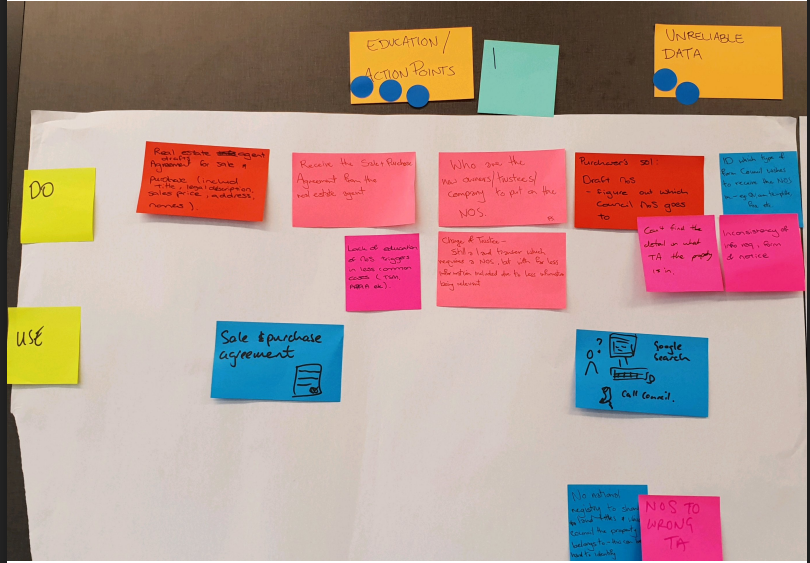 EDUCATION/
ACTION POINTS
I
UNRELIABLE
DATA
DO
Real estate agent
drafts
Agreement for sale &
purchase (included
title, legal description,
sales price, address,
names).
Receive the Sale + Purchase
Agreement from the
real estate agent
Who are the
new owners/trustees/
company to put on the
NOS.
Purchaser's sol:
Draft NoS
- Figure out which
Council NoS goes
to
ID which type of
form Council wishes
to receive the NOS
in
Lack of education
of NOS triggers
in less common
cases
Change of Trustee -
Still a land transfer which
requires a NOS, but with far less
information included due to less information
being relevant
Can't find the
detail on what
TA the property
is in.
Inconsistency of
info req, form
of notice
USE
Sale & purchase
agreement
?
Google
Search
Call Council.
No national
registry to
council the property
belongs to
hard to identify
NOS TO
WRONG
TA